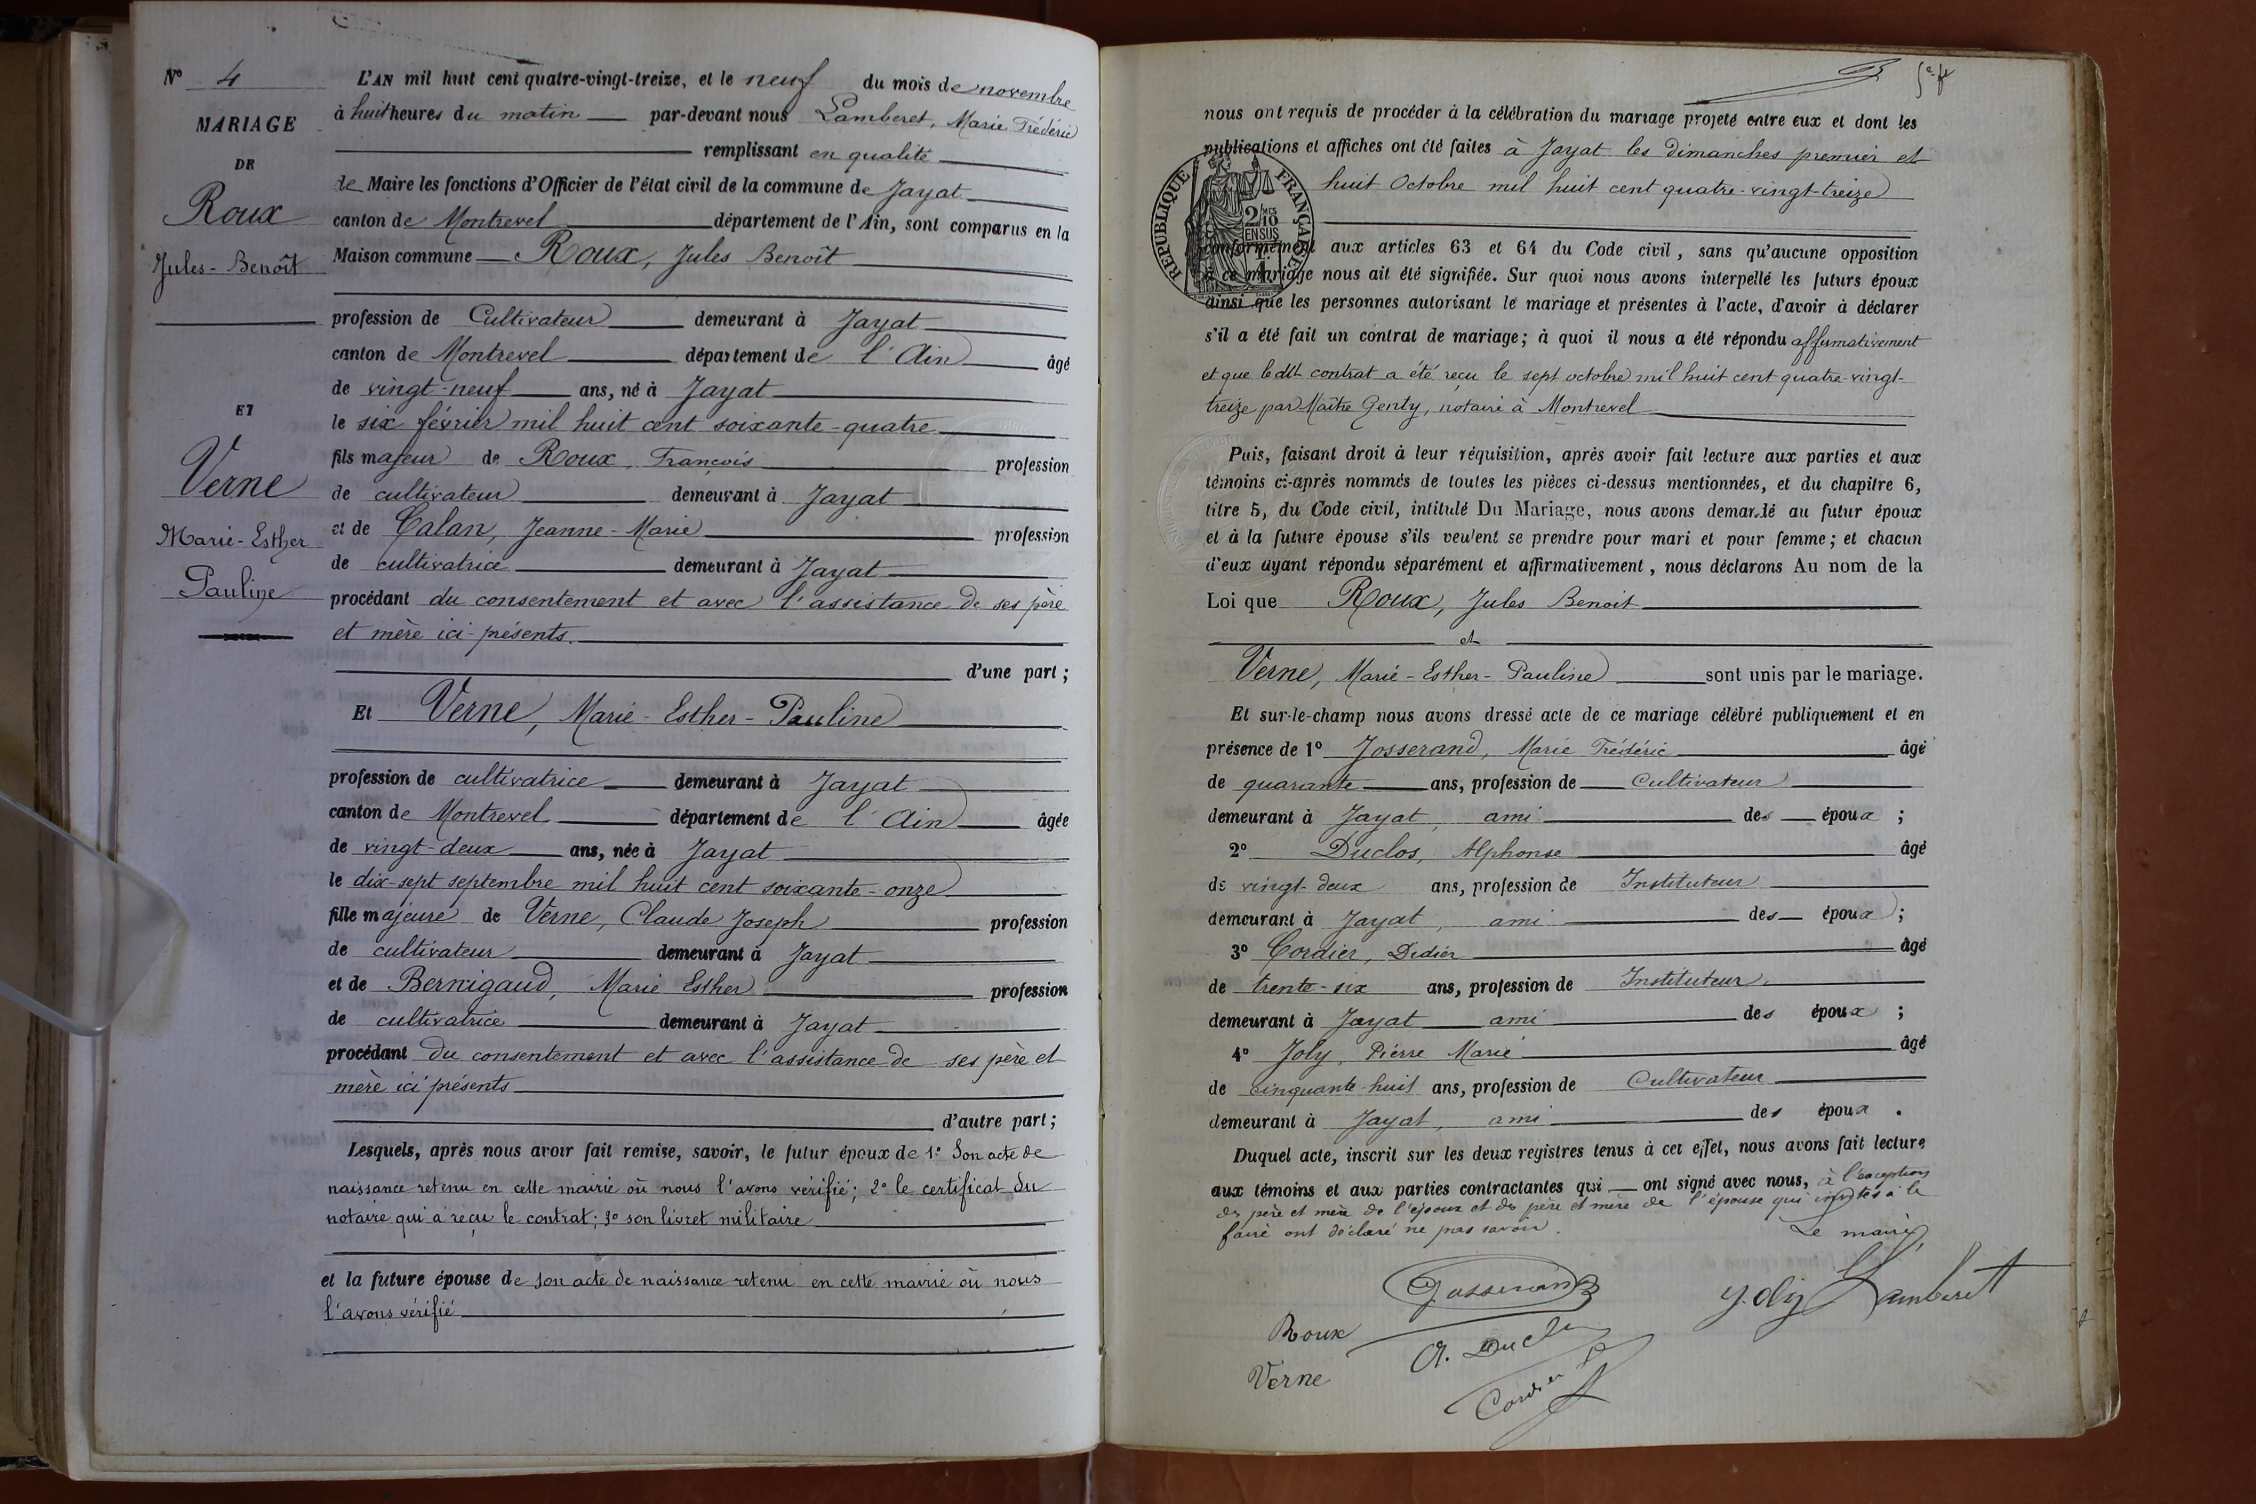 N° 4
MARIAGE
DE
Roux
Jules-Benoît
ET
Verne
Marie-Esther
Pauline
L'AN mil huit cent quatre-vingt-treize, et le neuf du mois de novembre
à huit heures du matin par-devant nous Lamberet, Marie Frédéric
remplissant en qualité
de Maire les fonctions d'Officier de l'état civil de la commune de Jayat
canton de Montrevel département de l'Ain, sont comparus en la
Maison commune Roux, Jules Benoît
profession de Cultivateur demeurant à Jayat
canton de Montrevel département de l'Ain âgé
de vingt-neuf ans, né à Jayat
le six février mil huit cent soixante-quatre
fils majeur de Roux, François profession
de cultivateur demeurant à Jayat
et de Calan, Jeanne-Marie profession
de cultivatrice demeurant à Jayat
procédant du consentement et avec l'assistance de ses père
et mère ici présents.
d'une part ;
Et Verne, Marie-Esther-Pauline
profession de cultivatrice demeurant à Jayat
canton de Montrevel département de l'Ain âgée
de vingt-deux ans, née à Jayat
le dix-sept septembre mil huit cent soixante-onze
fille majeure de Verne, Claude Joseph profession
de cultivateur demeurant à Jayat
et de Bernigaud, Marie Esther profession
de cultivatrice demeurant à Jayat
procédant du consentement et avec l'assistance de ses père et
mère ici présents
d'autre part ;
Lesquels, après nous avoir fait remise, savoir, le futur époux de 1° Son acte de
naissance retenu en cette mairie où nous l'avons vérifié; 2° le certificat du
notaire qui a reçu le contrat; 3° son livret militaire
et la future épouse de son acte de naissance retenu en cette mairie où nous
l'avons vérifié
nous ont requis de procéder à la célébration du mariage projeté entre eux et dont les
publications et affiches ont été faites à Jayat les dimanches premier et
huit Octobre mil huit cent quatre-vingt-treize
RÉPUBLIQUE FRANÇAISE
2/10 EN SUS
conformément aux articles 63 et 64 du Code civil, sans qu'aucune opposition
à ce mariage nous ait été signifiée. Sur quoi nous avons interpellé les futurs époux
ainsi que les personnes autorisant le mariage et présentes à l'acte, d'avoir à déclarer
s'il a été fait un contrat de mariage; à quoi il nous a été répondu affirmativement
et que ledit contrat a été reçu le sept octobre mil huit cent quatre-vingt-
treize par Maître Genty, notaire à Montrevel
Puis, faisant droit à leur réquisition, après avoir fait lecture aux parties et aux
témoins ci-après nommés de toutes les pièces ci-dessus mentionnées, et du chapitre 6,
titre 5, du Code civil, intitulé Du Mariage, nous avons demandé au futur époux
et à la future épouse s'ils veulent se prendre pour mari et pour femme; et chacun
d'eux ayant répondu séparément et affirmativement, nous déclarons Au nom de la
Loi que Roux, Jules Benoit
et
Verne, Marie-Esther-Pauline sont unis par le mariage.
Et sur-le-champ nous avons dressé acte de ce mariage célébré publiquement et en
présence de 1° Josserand, Marie Frédéric âgé
de quarante ans, profession de Cultivateur
demeurant à Jayat, ami des époux ;
2° Duclos, Alphonse âgé
de vingt-deux ans, profession de Instituteur
demeurant à Jayat, ami des époux ;
3° Cordier, Didier âgé
de trente-six ans, profession de Instituteur.
demeurant à Jayat ami des époux ;
4° Joly, Pierre Marie âgé
de cinquante-huit ans, profession de Cultivateur
demeurant à Jayat, ami des époux .
Duquel acte, inscrit sur les deux registres tenus à cet effet, nous avons fait lecture
aux témoins et aux parties contractantes qui ont signé avec nous, à l'exception
des père et mère de l'époux et des père et mère de l'épouse qui invités à le
faire ont déclaré ne pas savoir.
Le maire,
Josserand
Joly Lamberet
Roux
A. Duclos
Verne
Cordier